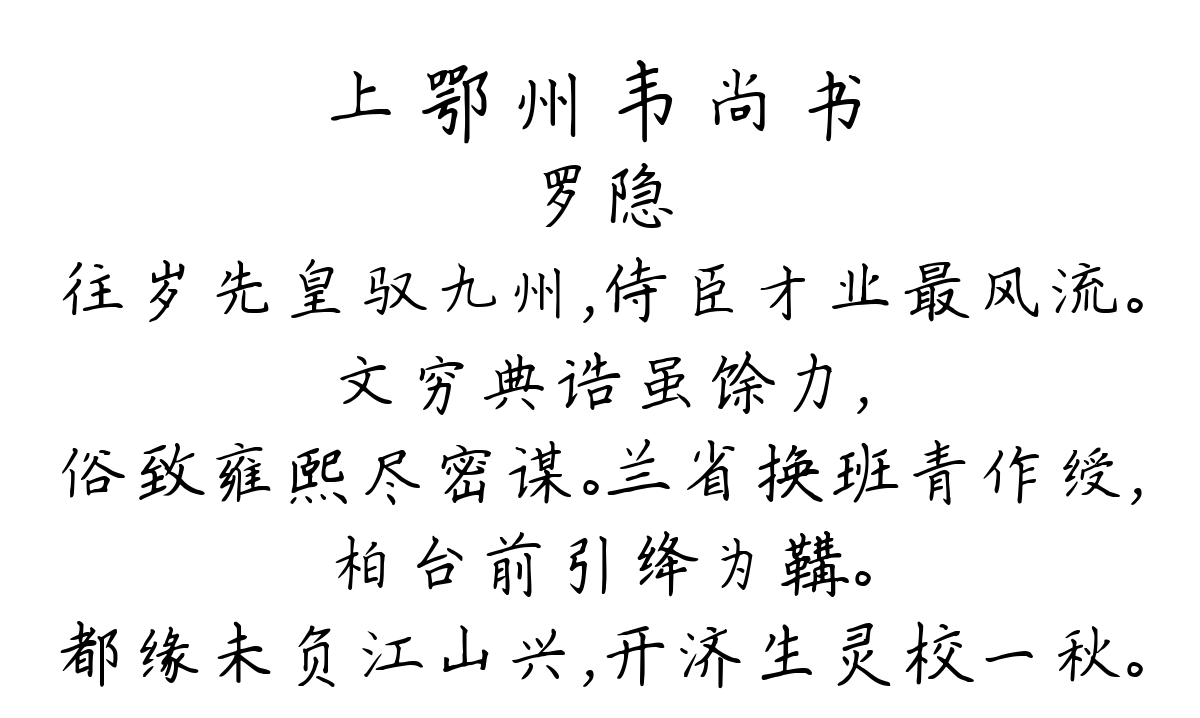 上鄂州韦尚书
罗隐
往岁先皇驭九州,侍臣才业最风流。
文穷典诰虽馀力,
俗致雍熙尽密谋。兰省换班青作绶,
柏台前引绛为鞲。
都缘未负江山兴,开济生灵校一秋。